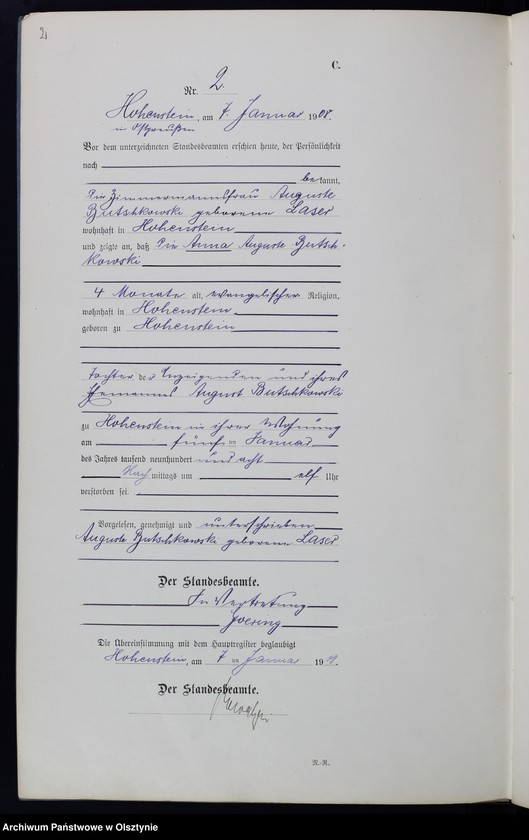 2
C.
Nr. 2.
Hohenstein, am 7. Januar 1908.
in Ostpreußen
Vor dem unterzeichneten Standesbeamten erschien heute, der Persönlichkeit
nach
bekannt,
die Zimmermannsfrau Auguste
Butschkowski geborene Laser
wohnhaft in Hohenstein
und zeigte an, daß die Anna Auguste Butsch-
kowski
4 Monate alt, evangelischer Religion,
wohnhaft in Hohenstein
geboren zu Hohenstein
Tochter der Anzeigenden und ihres
Ehemannes August Butschkowski
zu Hohenstein in ihrer Wohnung
am fünf ten Januar
des Jahres tausend neunhundert und acht
Nach mittags um elf Uhr
verstorben sei.
Vorgelesen, genehmigt und unterschrieben
Auguste Butschkowski geborene Laser
Der Standesbeamte.
In Vertretung
Goering
Die Übereinstimmung mit dem Hauptregister beglaubigt
Hohenstein, am 7 ten Januar 19
Der Standesbeamte.
N.-R.
Archiwum Państwowe w Olsztynie